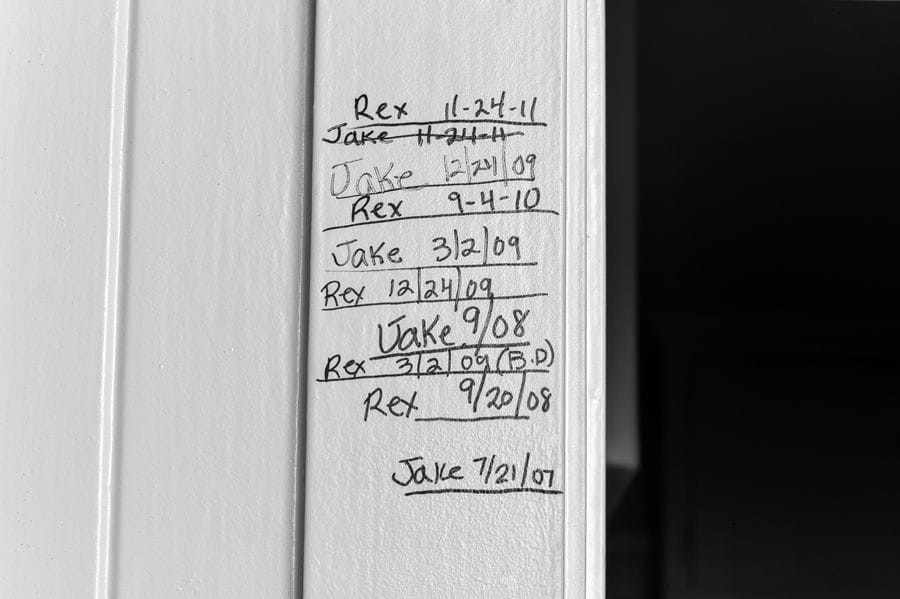 Rex 11-24-11
Jake 11-24-11
Jake 12/24/09
Rex 9-4-10
Jake 3/2/09
Rex 12/24/09
Jake 9/08
Rex 3/2/09 (B.D)
Rex 9/20/08
Jake 7/21/07